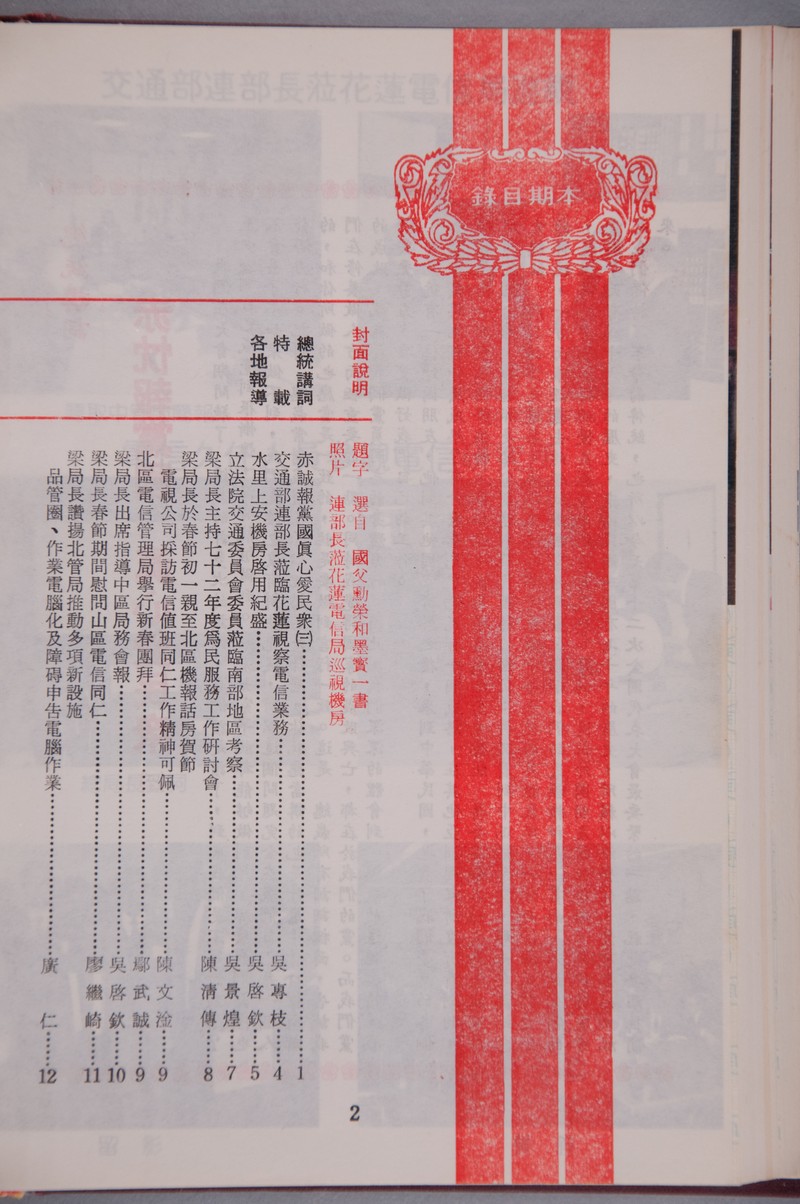 本期目錄
封面說明
題字 選自 國父勳榮和墨寶一書
照片 連部長蒞花蓮電信局巡視機房
總統講詞
赤誠報黨國眞心愛民衆㈢…………1
特載
交通部連部長蒞臨花蓮視察電信業務…………吳專枝……4
各地報導
水里上安機房啓用紀盛…………吳啓欽……5
立法院交通委員會委員蒞臨南部地區考察…………吳景煌……7
梁局長主持七十二年度爲民服務工作研討會…………陳清傳……8
梁局長於春節初一親至北區機報話房賀節
電視公司採訪電信值班同仁工作精神可佩…………陳文淦……9
北區電信管理局舉行新春團拜…………鄢武誠……9
梁局長出席指導中區局務會報…………吳啓欽……10
梁局長春節期間慰問山區電信同仁…………廖繼崎……11
梁局長讚揚北管局推動多項新設施
品管圈、作業電腦化及障碍申告電腦作業…………廣仁……12
2